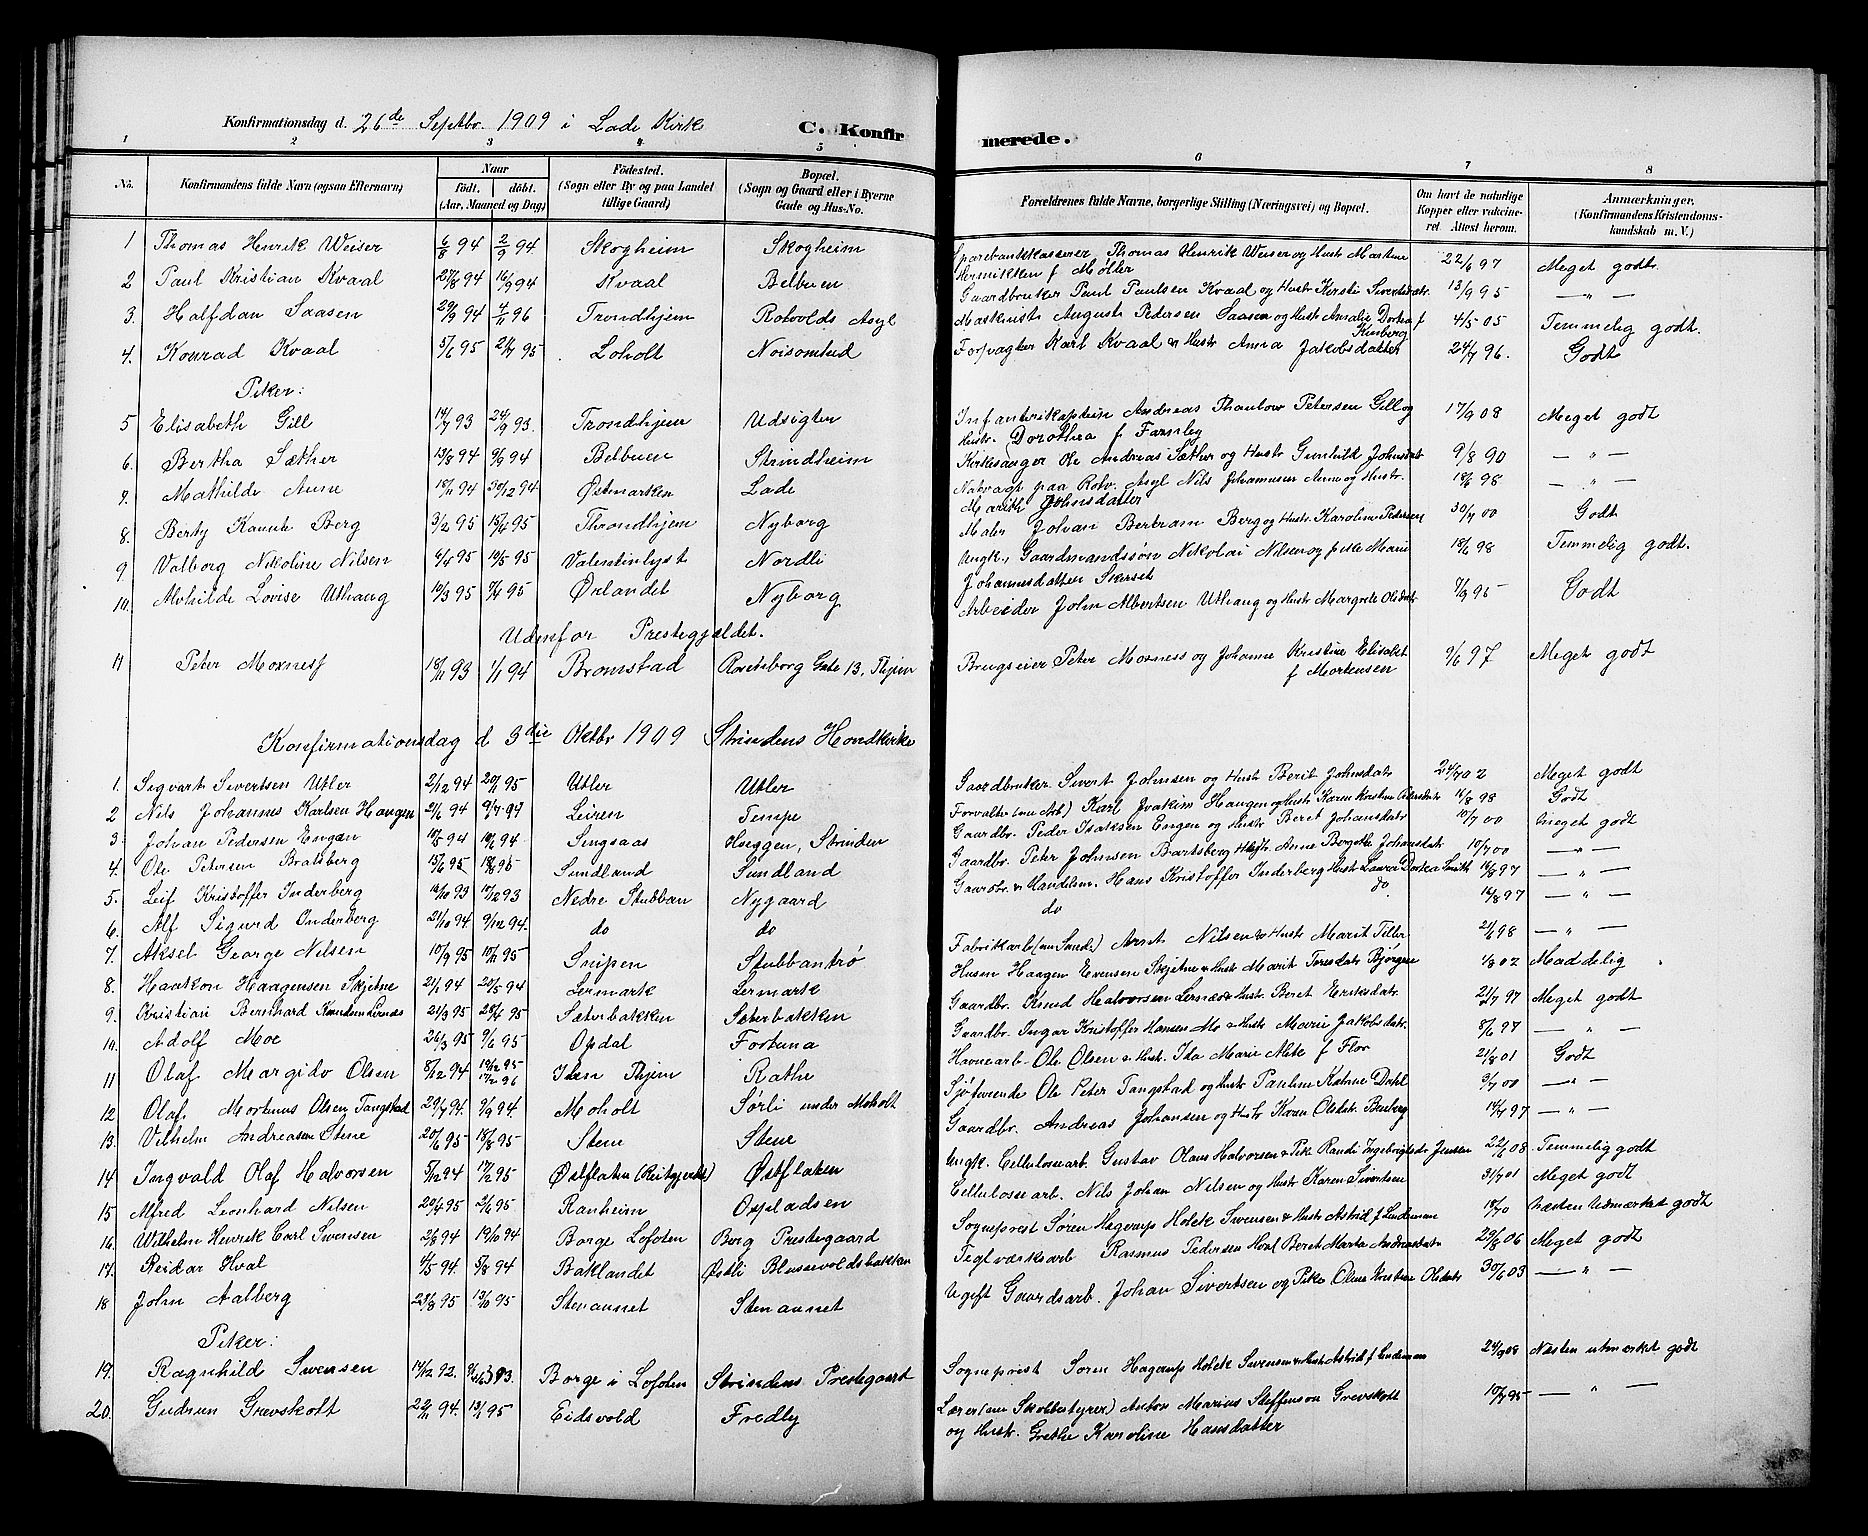 Konfirmationsdag d. 26de Septbr. 1909 i Lade Kirke C. Konfirmerede.
1 2 3 4 5 6 7 8
No. Konfirmandens fulde Navn (ogsaa Efternavn) Naar født. døbt. (Aar, Maaned og Dag) Fødested. (Sogn eller By og paa Landet tillige Gaard) Bopæl. (Sogn og Gaard eller i Byerne Gade og Hus-No. Forældrenes fulde Navne, borgerlige Stilling (Næringsvei) og Bopæl. Om havt de naturlige Kopper eller vaccineret. Attest herom. Anmærkninger. (Konfirmandens Kristendomskundskab m. V.)
1 Thomas Henrik Weiser 6/8 94 2/9 94 Skogheim Skogheim Sparebankkasserer Thomas Henrik Weiser og Hustr Martine Henrikken f Møller 22/6 97 Meget godt.
2 Paul Kristian Kvaal 27/8 94 16/9 94 Kvaal Belbuen Gaardbruker Paul Paulsen Kvaal og Hustr Kersti Sivertsdatr. 13/9 95 — " —
3. Halfdan Saasen 29/9 94 4/11 96 Trondhjem Rotvolds Asyl Maskinist August Pedersen Saasen og Hustr Amalie Dortea f Kinberg 4/5 05 Temmelig godt.
4. Konrad Kvaal 5/6 95 21/7 95 Loholt Noisomhed Forpagter Karl Kvaal & Hustr Anna Jakobsdatter 24/7 96. Godt
Piker:
5 Elisabeth Gill 14/7 93 24/9 93. Trondhjem Udsigten Infanterikaptein Andreas Thaulow Petersen Gill og Hustr. Dorothea f Farnley 17/9 08 Meget godt
6. Bertha Sæther 13/8 94 9/9 94 Belbuen Strindheim Kirkesanger Ole Andreas Sæther og Hustr Gunhild Johnsdatr 9/8 90 — " —
7. Mathilde Aune 18/11 94 30/12 94 Østmarken Lade Natvagt paa Rotv. Asyl Nils Johannesen Aune og Hustr. Marith Johnsdatter 18/6 98 — " —
8. Berty Kauth Berg 3/2 95 15/4 95 Throndhjem Nyborg Maler Johan Bertram Berg og Hustr. Karoline Pedersen 30/7 00 Godt
9 Valborg Nikoline Nilsen 4/4 95 19/5 95 Valentinlyst Nordli Ungk., Gaardmandssøn Nikolai Nilsen og pike Marie Johannesdatter Skerset 18/6 98 Temmelig godt.
10. Mathilde Lovise Uthaug 10/3 95 7/4 95 Ørlandet Nyborg Arbeider John Albertsen Uthaug og Hustr Margrete Olsdatr 7/9 95 Godt
Udenfor Prestegjældet.
11 Peter Moxness 18/11 93 1/1 94 Bromstad Rosenborg Gate 13, Thjem Brugseier Peter Moxness og Johanne Kristine Elisabet f Mortensen 9/6 97 Meget godt
Konfirmationsdag d 3die Oktbr 1909 Strindens Hovedkirke
1. Sigvart Sivertsen Utler 2/12 94 20/1 95 Utler Utler Gaardbruker Sivert Johnsen og Hustr Berit Johnsdatr 24/7 02 Meget godt
2 Nils Johannes Karlsen Haugen 21/6 94 9/7 94 Leiren Tempe Forvalter (nu Arb) Karl Joakim Haugen og Hustr Karen Kristine Pedersdatr 16/8 98 Godt
3. Johan Pedersen Engan 10/5 94 10/6 94 Singsaas Hoeggen, Strinden Gaardbr. Peder Isaksen Engen og Hustr Beret Johansdatr 10/7 00 Meget godt
4. Ole Petersen Bratsberg 15/6 95 18/8 95 Sundland Sundland Gaardbr. Peter Johnsen Bartsberg Hustr. Anne Bergitte Johansdatr 10/7 00 — " —
5. Leif Kristoffer Inderberg 12/10 93 17/12 93 Nedre Stubban Nygaard Gaardbr. & Handelsm. Hans Kristoffer Inderberg Hustr Laura Dortea Smith 16/8 97 — " —
6. Alf Sigurd Inderberg 21/10 94 9/12 94. do do do do 16/8 97 — " —
7. Aksel George Nilsen 10/9 95 10/11 95 Snipen Stubbantrø Fabrikarb (nu Smed) Arnt Nilsen & Hustr Marit Tiller 21/6 98 — " —
8. Haakon Haagensen Skjetne 21/1 94 20/5 94 Lermark Lermark Husm Haagen Evensen Skjetne & Hustr Marit Toresdatr Bjørgen 1/8 02 Maadelig
9. Kristian Bernhard Knudsen Lernæs 21/3 95 28/4 95 Sæterbakken Sæterbakken Gaardbr. Knud Halvorsen Lernæs & Hustr Beret Eriksdatr. 21/7 97 Meget godt
10. Adolf Moe 26/3 95 9/6 95 Opdal Fortuna Gaardbr. Ingar Kristoffer Hansen Mo & Hustr Marie Jakobsdatr. 8/6 97 — " —
11 Olaf Margido Olsen 8/12 94 Ilen Thjem Rathe Havnearb. Ole Olsen & Hustr. Ida Marie Mete f Flor 21/8 01 Godt
12 Olaf Martinus Olsen Tangstad 29/7 94. 9/9 94 Moholt Sørli under Moholt Sjøfarende Ole Peter Tangstad og Hustr Pauline Katrine Dahl 3/7 00 — " —
13. Vilhelm Andreasen Stene 20/6 95 18/8 95 Stene Stene Gaardbr. Andreas Johansen og Hustr Karen Olsdatr. Benberg 14/7 97 — " —
14 Ingvald Olaf Halvorsen 5/12 94 17/2 95 Østflaten (Reitgjerdet) Østflaten Ungk. Cellulosearb. Gustav Olaus Halvorsen & Pike Randi Ingebrigtsdr Jensen 22/6 08 Temmelig godt
15 Alfred Leonhard Nilsen 20/4 95 2/6 95 Ranheim Oxpladsen Cellulosearb. Nils Johan Nilsen og Hustr Karen Sivertsen 31/7 01 Meget godt
16. Wilhelm Henrik Carl Swensen 2/8 94 19/10 94 Borge Lofoten Berg Prestegaard Sogneprest Søren Hagerup Holck Swensen & Hustr Astrid f Lindeman Næsten Udmærket godt
17. Reidar Hval 4/5 94. 5/8 94 Baklandet Østli Blussevoldsbakken Teglværksarb Rasmus Pedersen Hval Beret Marta Andreasdatr 29/8 06 Meget godt
18 John Aalberg 23/8 95 13/10 95 Stenaunet Stenaunet Ugift Gaardsarb. Johan Sivertsen og Pike Oline Kristine Olsdatr 30/6 03 — " —
Piker:
19. Ragnhild Swensen 14/12 92. Borge i Lofoten Strindens Prestegaard Sogneprest Søren Hagerup Holck Swensen & Hustr Astrid f Lindeman 24/9 08 Næsten utmerket godt
20. Gudrun Grevskott 22/11 94. 13/1 95 Eidsvold Fredly Lærer (nu Skolbestyrer) Anton Marius Steffenson Grevskott og Hustr. Grethe Karoline Hansdatter 10/7 95 — " —